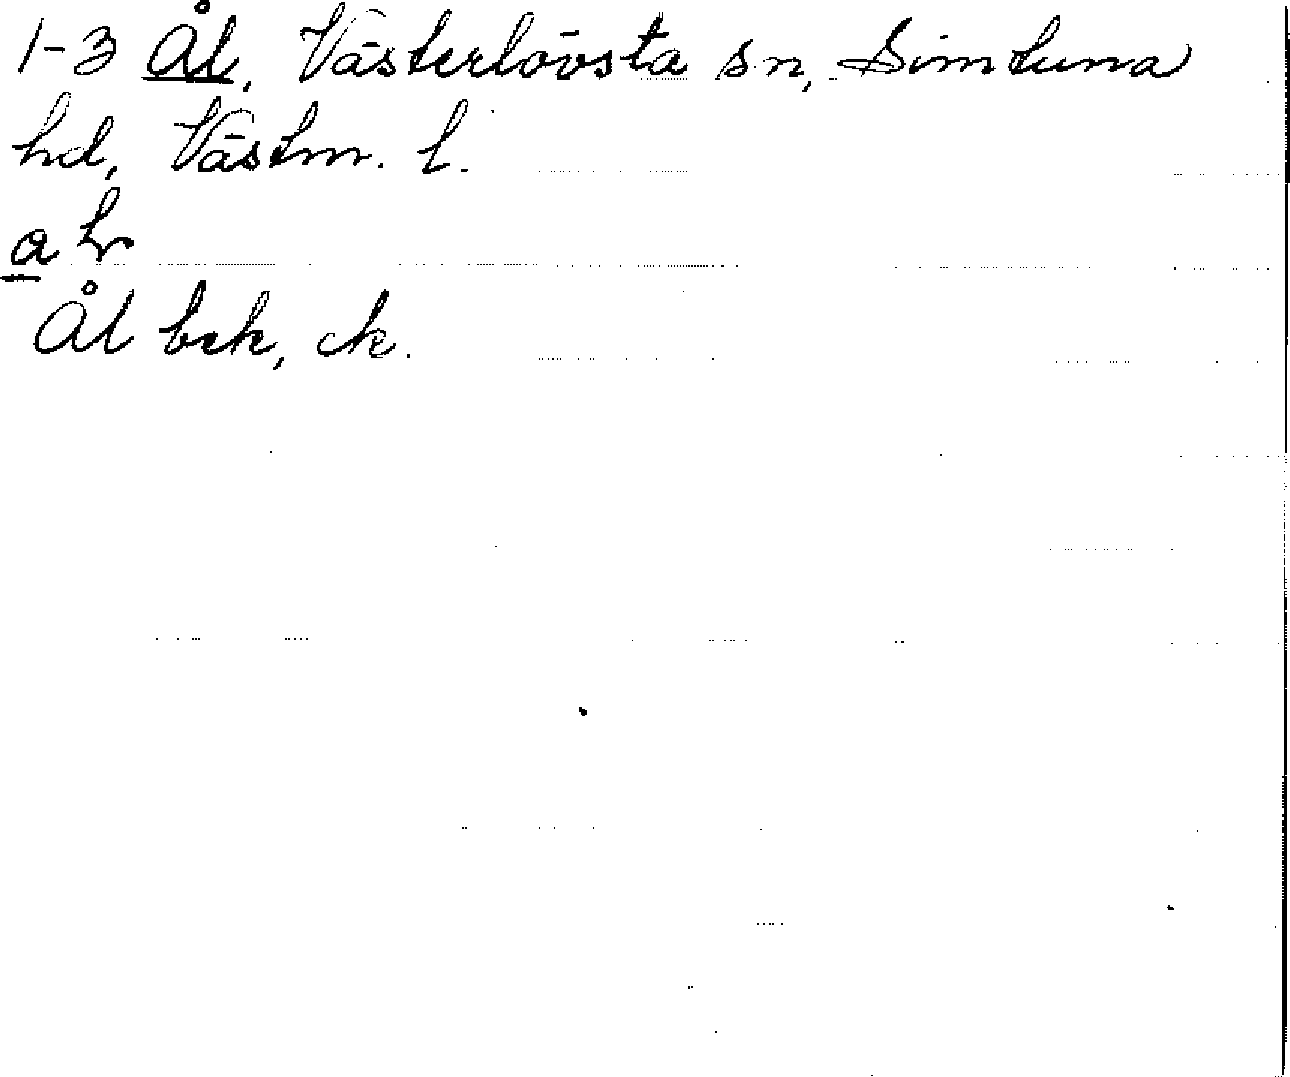 1-3 Ål, Västerlövsta sn, Simtuna
hd, Västm. l.
a
Ål bek, ek.